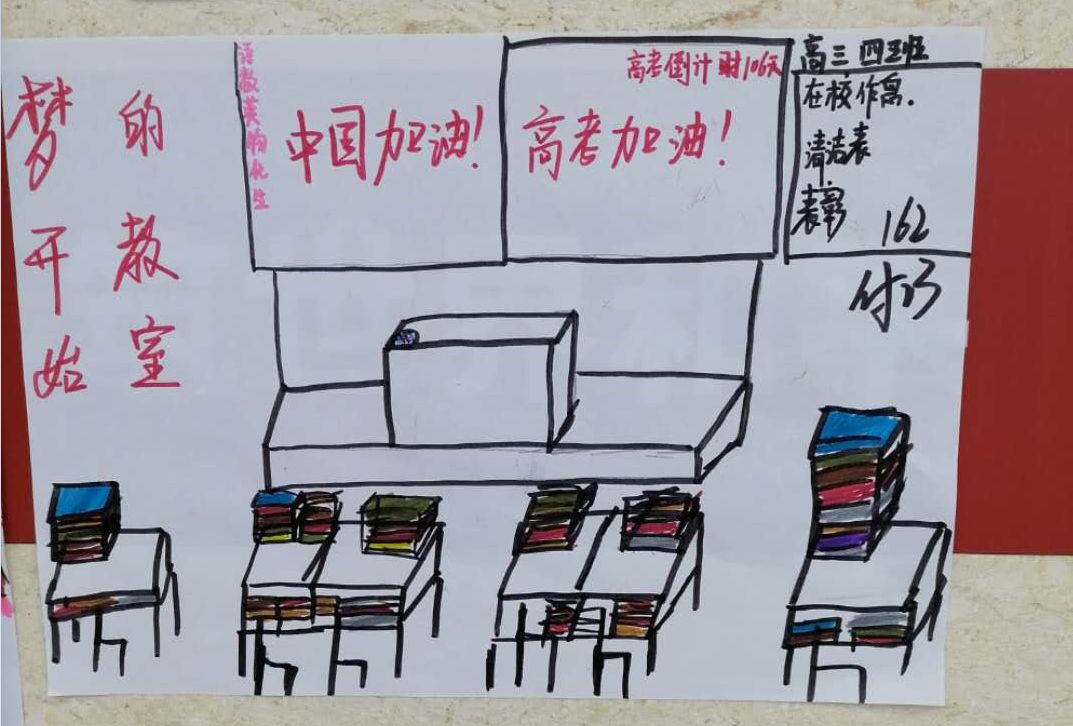 梦开始
的教室
语数英物化生
中国加油!
高考倒计时106天
高考加油!
高三四班
在校作息.
清洁表
表彰
162